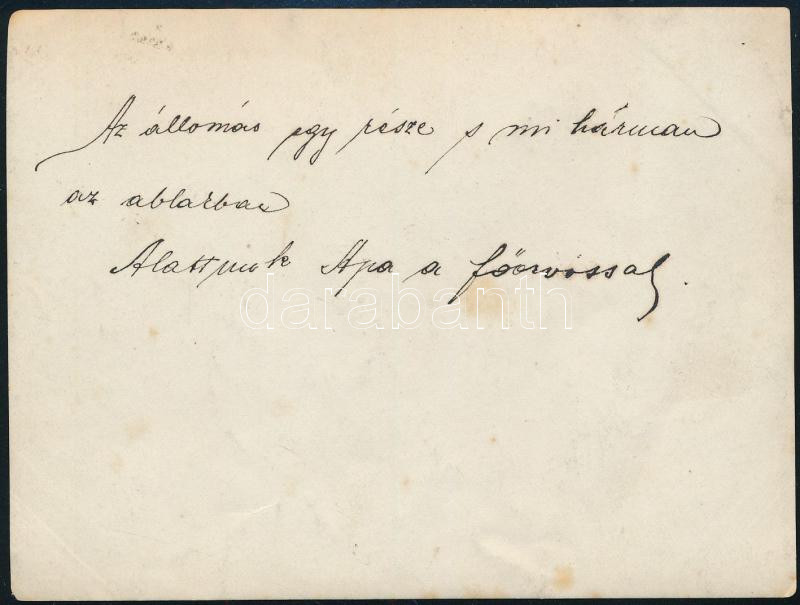 Az állomás egy része s mi hárman
az ablakban
Alattunk Apa a főorvossal.
darabanth